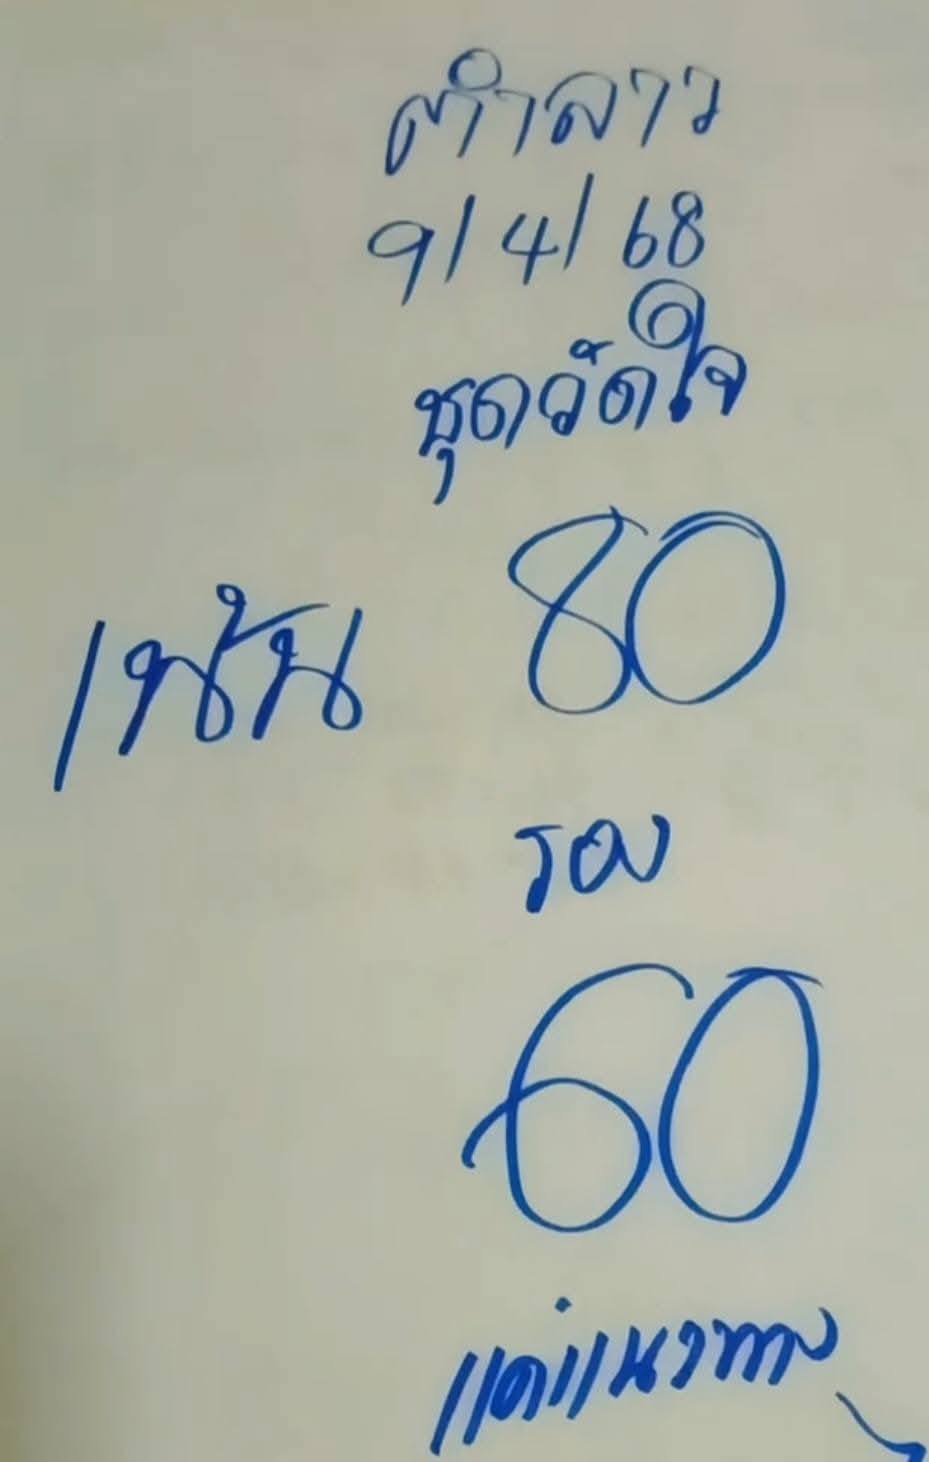 ตำลาว
9/4/68
ชุดวัดใจ
เน้น 80
รอง
60
แค่แนวทาง